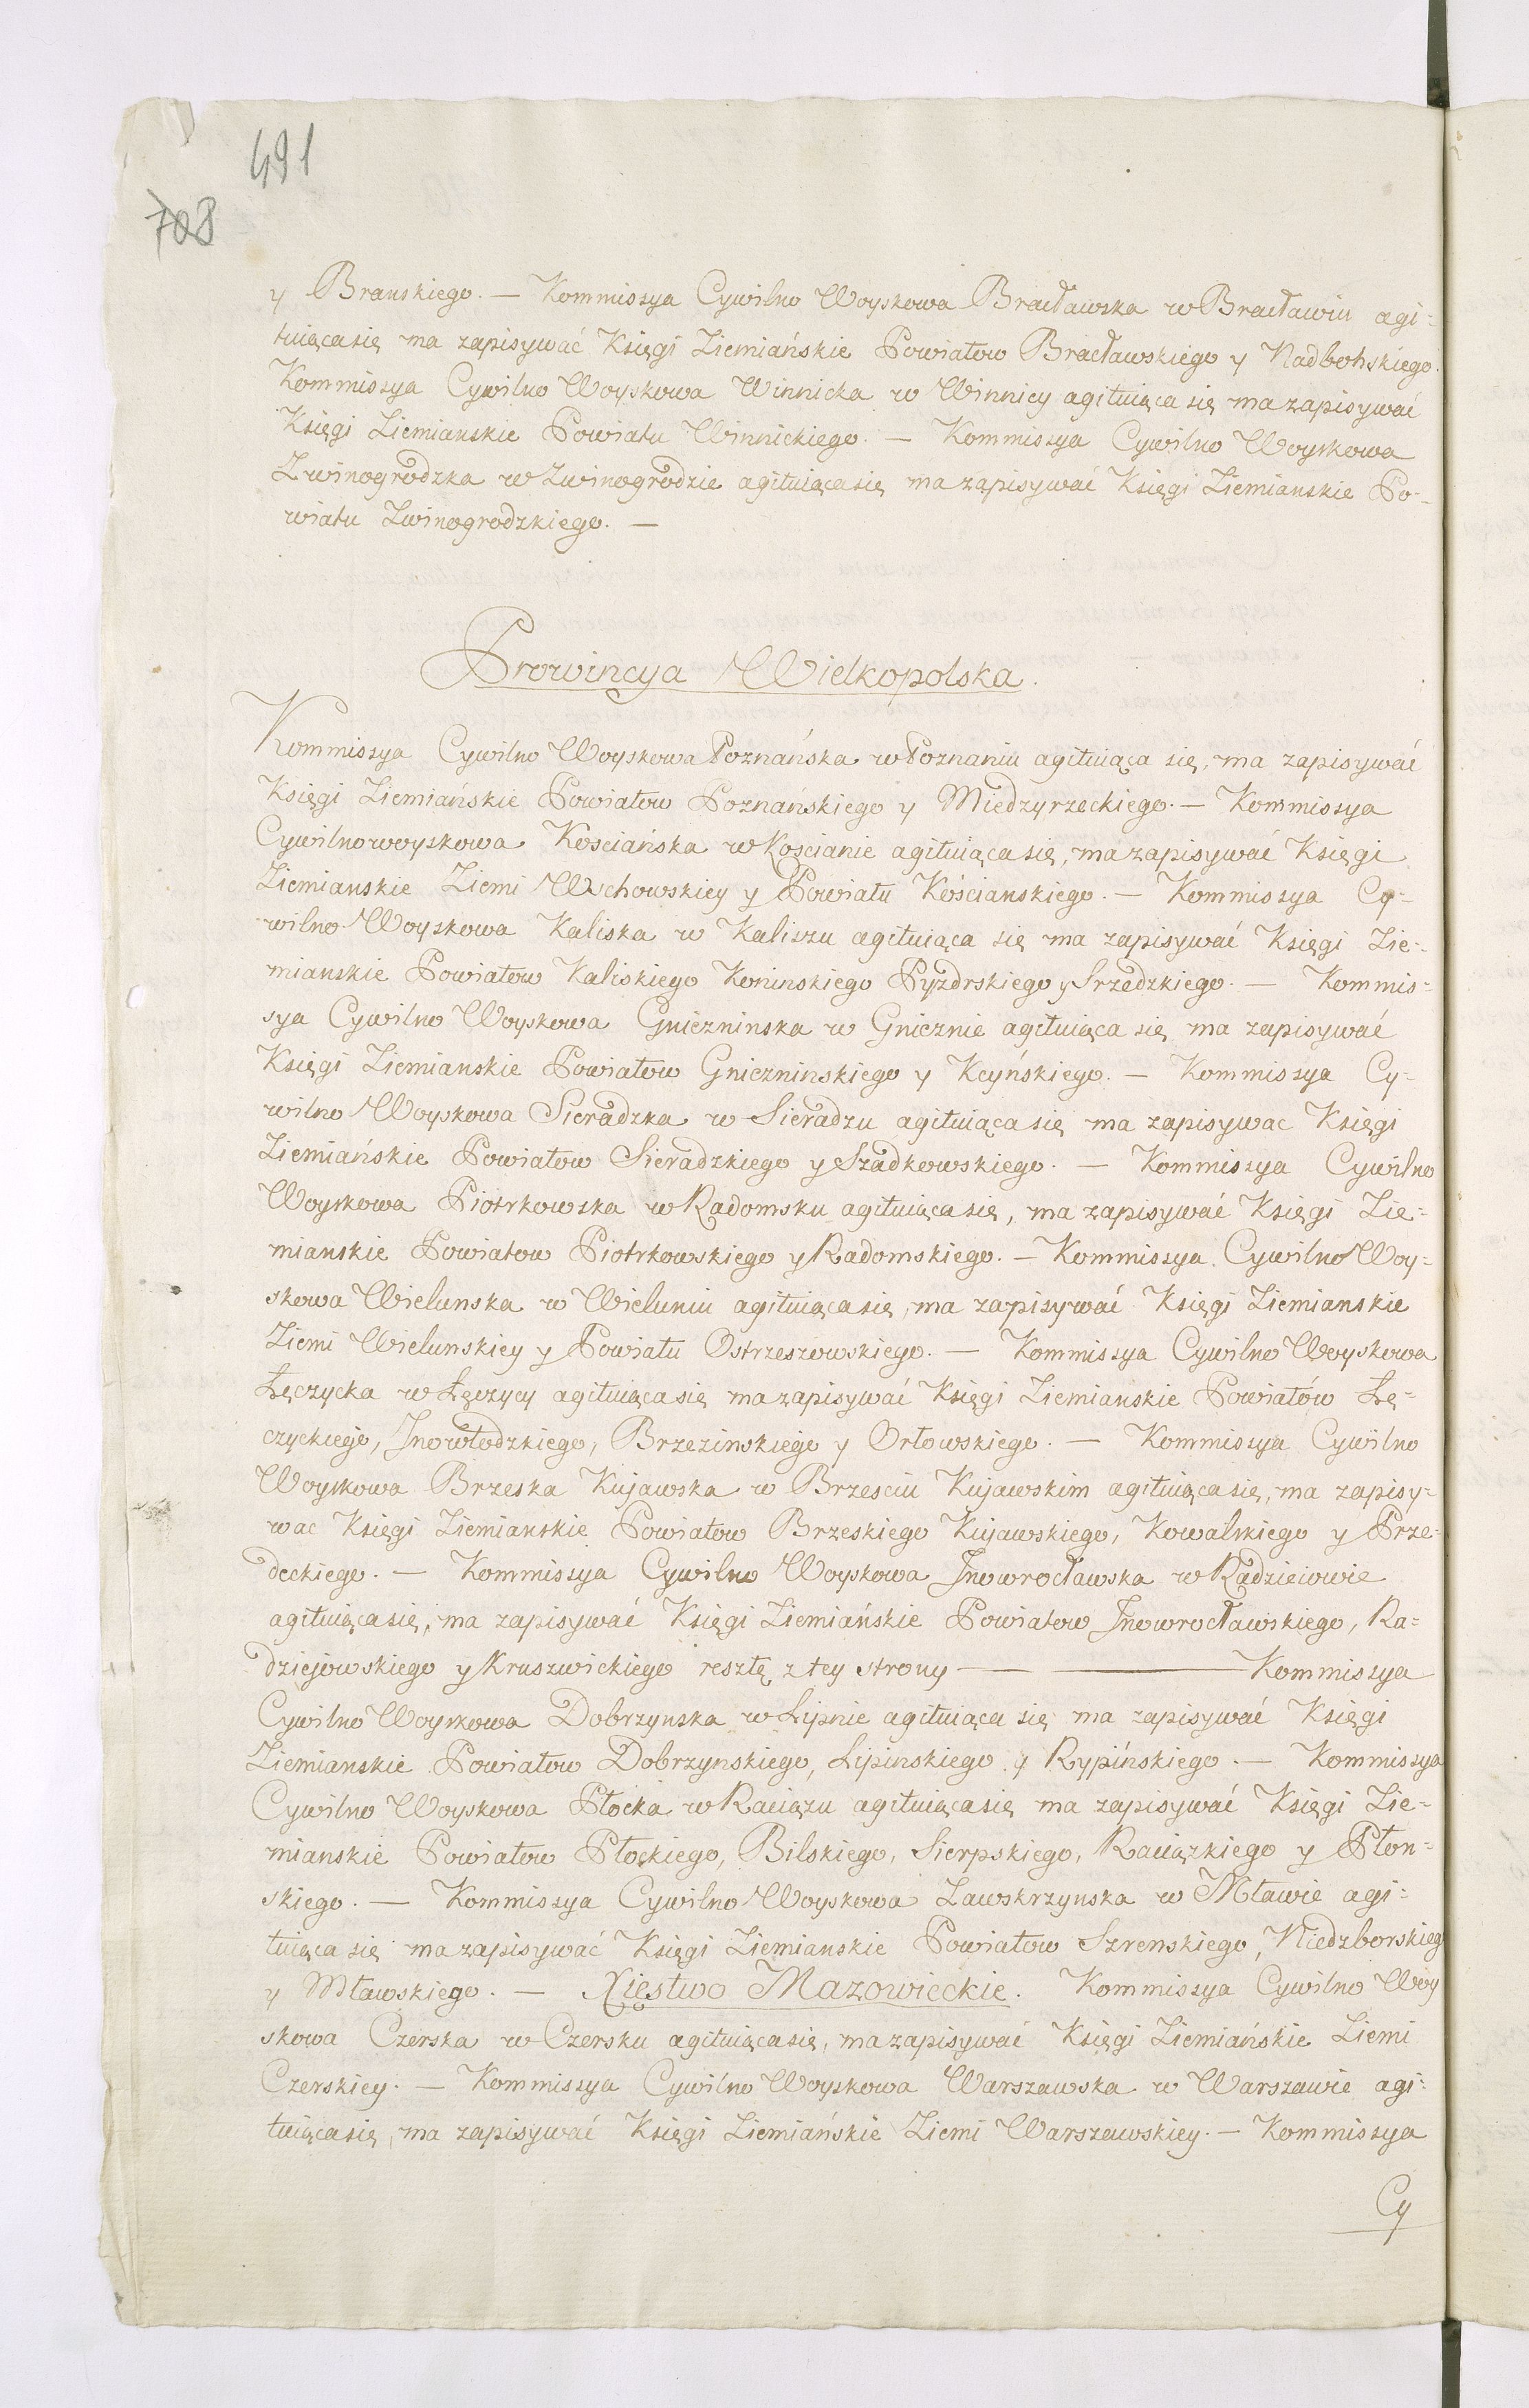 491
708
y Branskiego. — Kommissya Cywilno Woyskowa Bracławska w Bracławiu agi-
tuiąca się ma zapisywać Księgi Ziemiańskie Powiatow Bracławskiego y Nadbohskiego.
Kommissya Cywilno Woyskowa Winnicka w Winnicy agituiąca się ma zapisywać
Księgi Ziemianskie Powiatu Winnickiego. — Kommissya Cywilno Woyskowa
Zwinogrodzka w Zwinogrodzie agituiąca się ma zapisywać Księgi Ziemianskie Po-
wiatu Zwinogrodzkiego. —
Prowincya Wielkopolska.
Kommissya Cywilno Woyskowa Poznańska w Poznaniu agituiąca się, ma zapisywać
Księgi Ziemiańskie Powiatow Poznańskiego y Miedzyrzeckiego. — Kommissya
Cywilnowoyskowa Kościańska w Kościanie agituiąca się, ma zapisywać Księgi
Ziemianskie Ziemi Wschowskiey y Powiatu Kościanskiego. — Kommissya Cy-
wilno Woyskowa Kaliska w Kaliszu agituiąca się ma zapisywać Księgi Zie-
mianskie Powiatow Kaliskiego Koninskiego Pyzdrskiego y Srzedzkiego. — Kommis-
sya Cywilno Woyskowa Gniezninska w Gnieznie agituiąca się ma zapisywać
Księgi Ziemianskie Powiatow Gniezninskiego y Kcyńskiego. — Kommissya Cy-
wilno Woyskowa Sieradzka w Sieradzu agituiąca się ma zapisywac Księgi
Ziemiańskie Powiatow Sieradzkiego y Szadkowskiego. — Kommissya Cywilno
Woyskowa Piotrkowska w Radomsku agituiąca się, ma zapisywać Księgi Zie-
mianskie Powiatow Piotrkowskiego y Radomskiego. — Kommissya Cywilno Woy-
skowa Wielunska w Wieluniu agituiąca się, ma zapisywać Księgi Ziemianskie
Ziemi Wielunskiey y Powiatu Ostrzeszowskiego. — Kommissya Cywilno Woyskowa
Łęczycka w Łęczycy agituiąca się ma zapisywać Księgi Ziemianskie Powiatów Łę-
czyckiego, Jnowłodzkiego, Brzezinskiego y Orłowskiego. — Kommissya Cywilno
Woyskowa Brzeska Kujawska w Brzesciu Kujawskim agituiąca się, ma zapisy-
wac Księgi Ziemianskie Powiatow Brzeskiego Kujawskiego, Kowalskiego y Prze-
deckiego. — Kommissya Cywilno Woyskowa Jnowrocławska w Radzieiowie
agituiąca się, ma zapisywać Księgi Ziemiańskie Powiatow Jnowrocławskiego, Ra-
dziejowskiego y Kruszwickiego resztę z tey strony — — Kommissya
Cywilno Woyskowa Dobrzynska w Lipnie agituiąca się ma zapisywać Księgi
Ziemianskie Powiatow Dobrzynskiego, Lipinskiego y Rypińskiego. — Kommissya
Cywilno Woyskowa Płocka w Raciązu agituiąca się ma zapisywać Księgi Zie-
mianskie Powiatow Płockiego, Bilskiego, Sierpskiego, Raciązkiego y Płon-
skiego. — Kommissya Cywilno Woyskowa Zawskrzynska w Mławie agi-
tuiąca się ma zapisywać Księgi Ziemianskie Powiatow Szrenskiego, Niedzborskieg
y Mławskiego. — Xięstwo Mazowieckie. Kommissya Cywilno Woy
skowa Czerska w Czersku agituiąca się, ma zapisywać Księgi Ziemiańskie Ziemi
Czerskiey. — Kommissya Cywilno Woyskowa Warszawska w Warszawie agi-
tuiąca się, ma zapisywać Księgi Ziemiańskie Ziemi Warszawskiey. — Kommissya
Cy